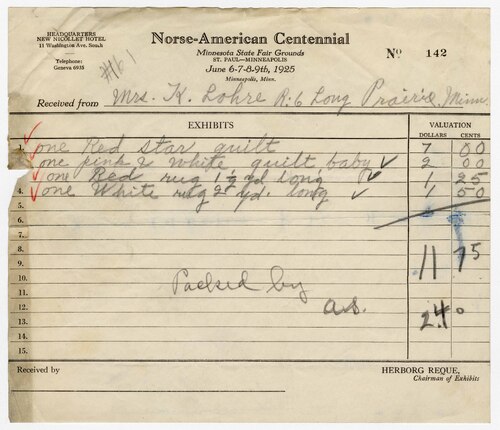 HEADQUARTERS
NEW NICOLLET HOTEL
11 Washington Ave. South
Telephone:
Geneva 6935
#161
Norse-American Centennial
Minnesota State Fair Grounds
ST. PAUL—MINNEAPOLIS
June 6-7-8-9th, 1925
Minneapolis, Minn.
No 142
Received from Mrs. K. Lohre R:6 Long Prairie, Minn.
EXHIBITS
VALUATION
DOLLARS CENTS
1. one Red star quilt 7 00
one pink & white quilt baby ✓ 2 00
one Red rug 1½ yd long ✓ 1 25
4. one White rug 2 yd. long ✓ 1 50
5.
6.
7.
8.
9. 11 75
10.
11. Packed by
12. a.s. 2.40
13.
15.
Received by
HERBORG REQUE,
Chairman of Exhibits